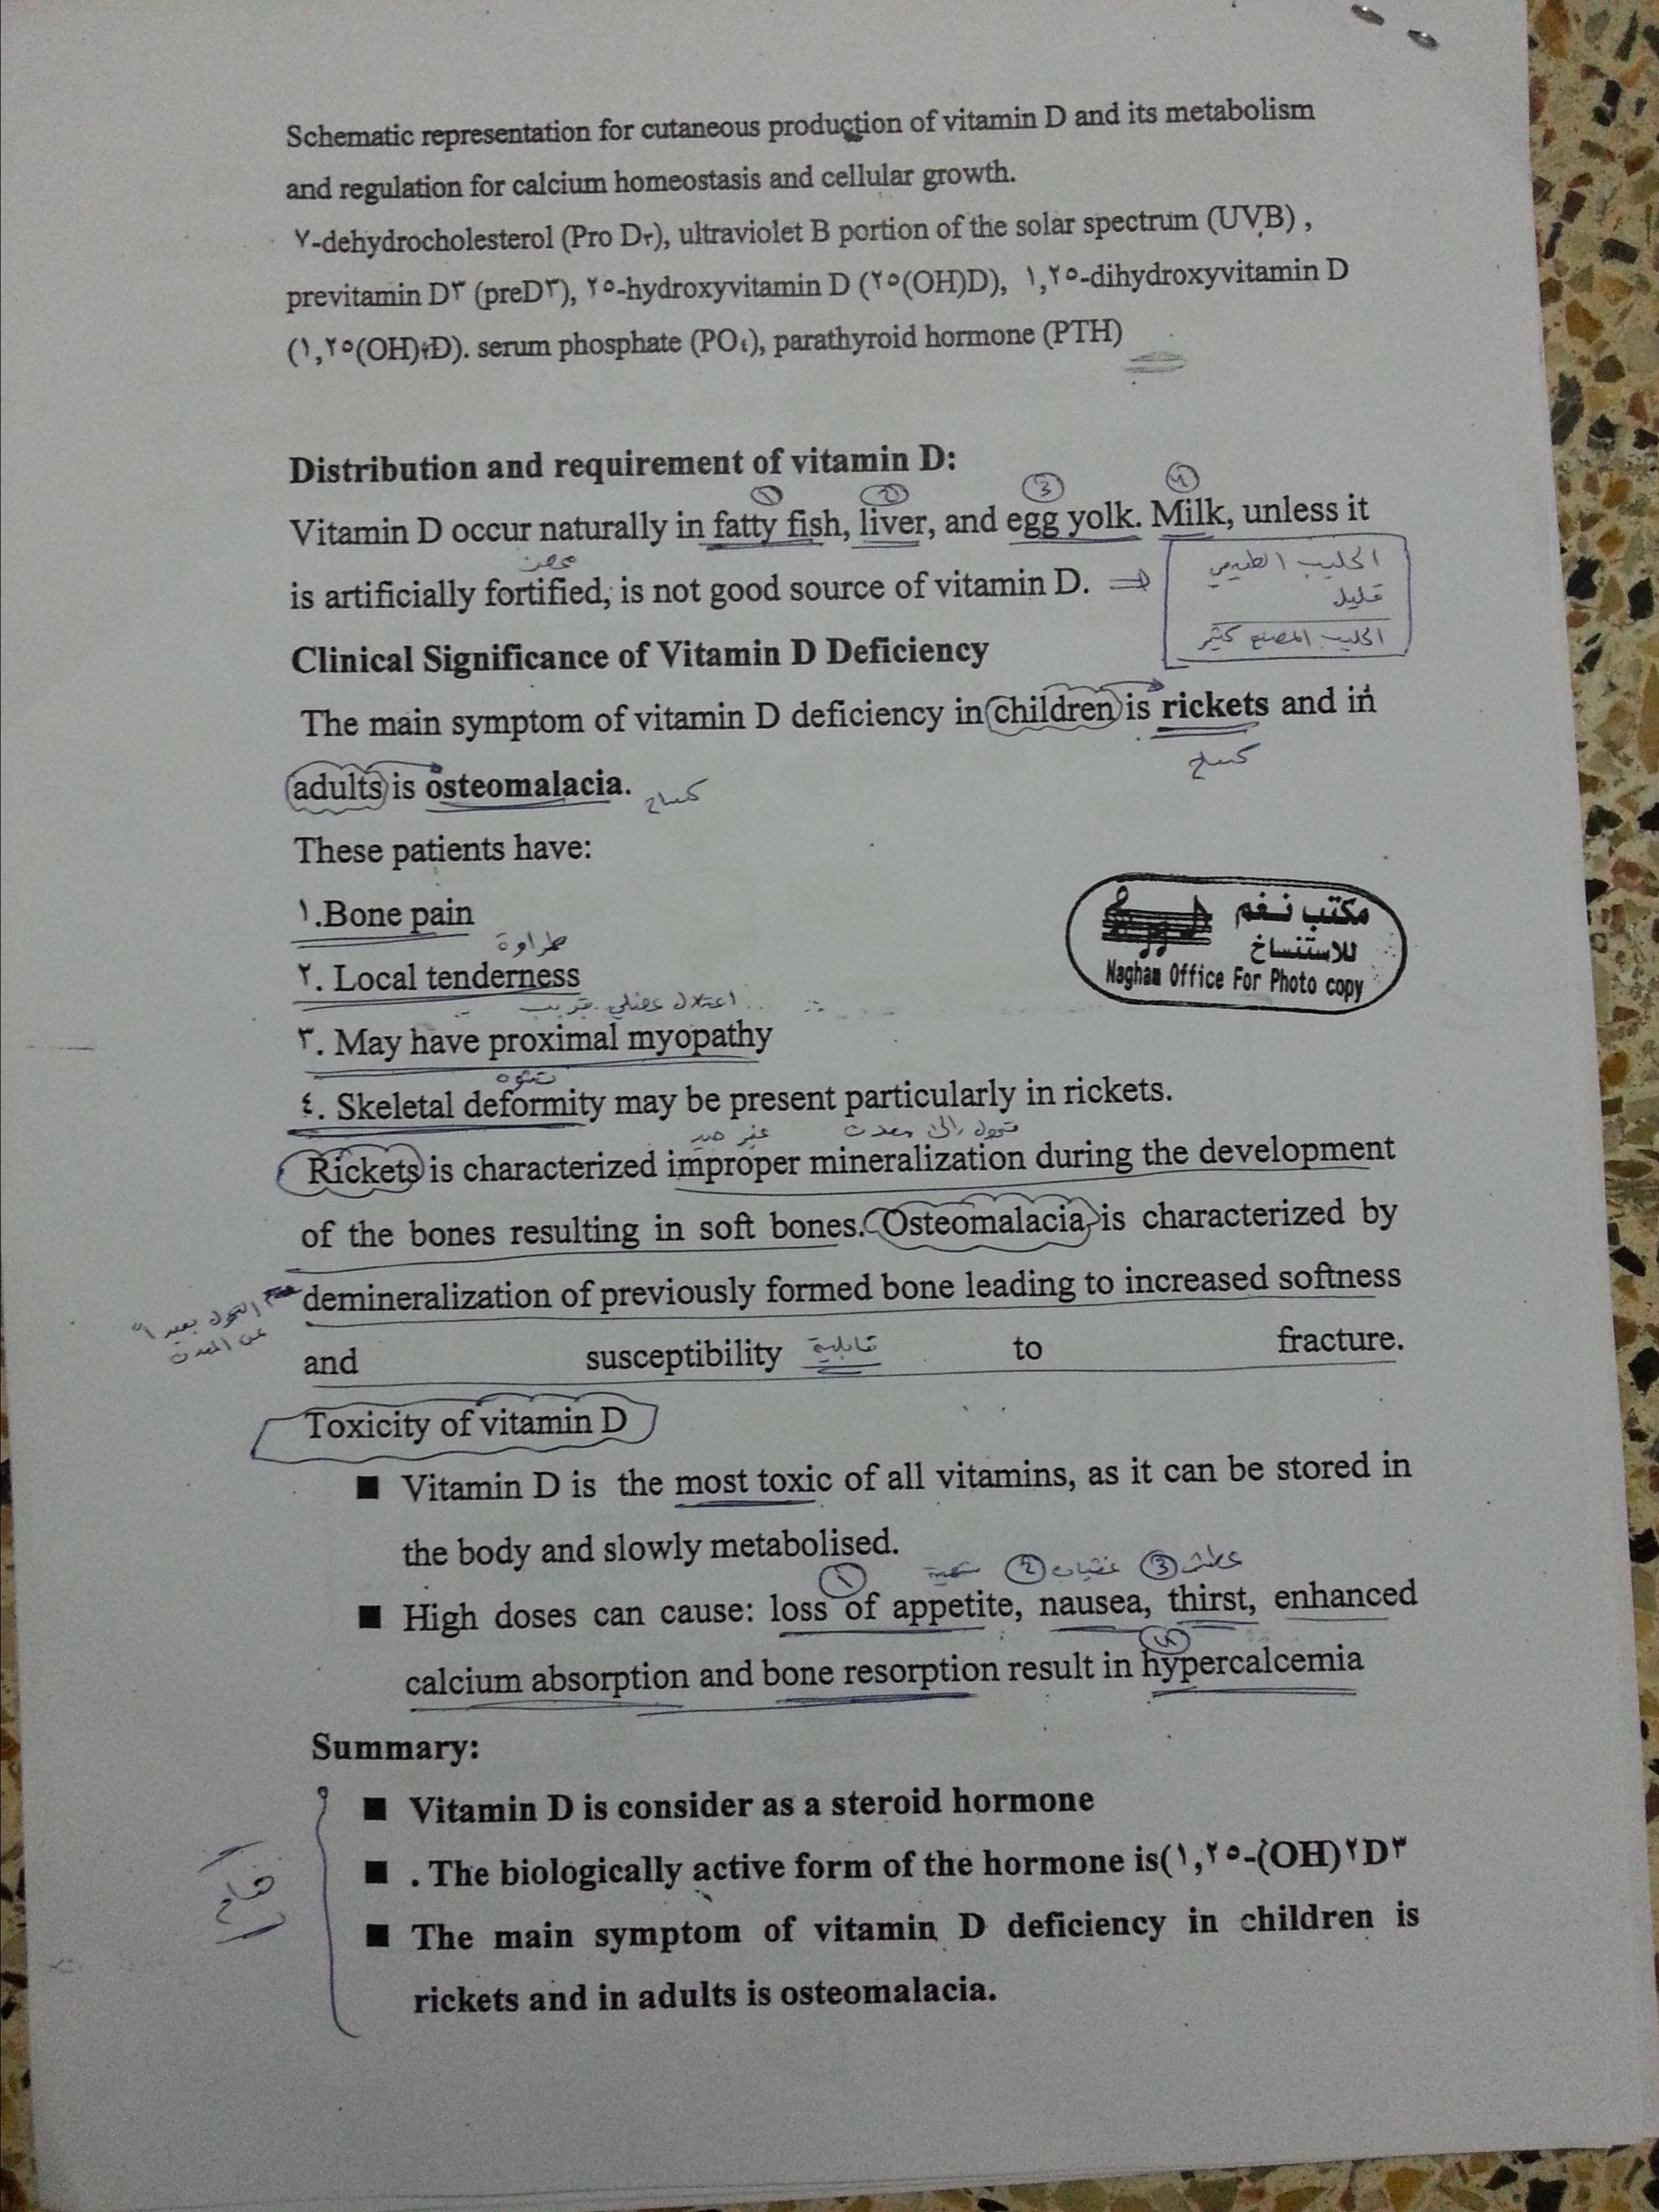 Schematic representation for cutaneous production of vitamin D and its metabolism
and regulation for calcium homeostasis and cellular growth.
٧-dehydrocholesterol (Pro D٣), ultraviolet B portion of the solar spectrum (UVB) ,
previtamin D٣ (preD٣), ٢٥-hydroxyvitamin D (٢٥(OH)D), ١,٢٥-dihydroxyvitamin D
(١,٢٥(OH)٢D). serum phosphate (PO٤), parathyroid hormone (PTH)
Distribution and requirement of vitamin D:
1 2 3 4
Vitamin D occur naturally in fatty fish, liver, and egg yolk. Milk, unless it
is artificially fortified, is not good source of vitamin D. ⇒
الحليب الطبيعي
قليل
الحليب المصنع كثير
Clinical Significance of Vitamin D Deficiency
The main symptom of vitamin D deficiency in children is rickets and in
كساح
adults is osteomalacia. كساح
These patients have:
١.Bone pain
طراوة
٢. Local tenderness
اعتلال عضلي قريب
٣. May have proximal myopathy
تشوه
٤. Skeletal deformity may be present particularly in rickets.
مكتب نغم
للاستنساخ
Nagham Office For Photo copy
تحول الى معدن
Rickets is characterized improper mineralization during the development
of the bones resulting in soft bones. Osteomalacia is characterized by
demineralization of previously formed bone leading to increased softness
التحول بعيد
عن المعدن
and susceptibility قابلية to fracture.
Toxicity of vitamin D
■ Vitamin D is the most toxic of all vitamins, as it can be stored in
the body and slowly metabolised.
1 شهية 2 غثيان 3 عطش
■ High doses can cause: loss of appetite, nausea, thirst, enhanced
4
calcium absorption and bone resorption result in hypercalcemia
Summary:
■ Vitamin D is consider as a steroid hormone
■ . The biologically active form of the hormone is(١,٢٥-(OH)٢D٣
■ The main symptom of vitamin D deficiency in children is
rickets and in adults is osteomalacia.